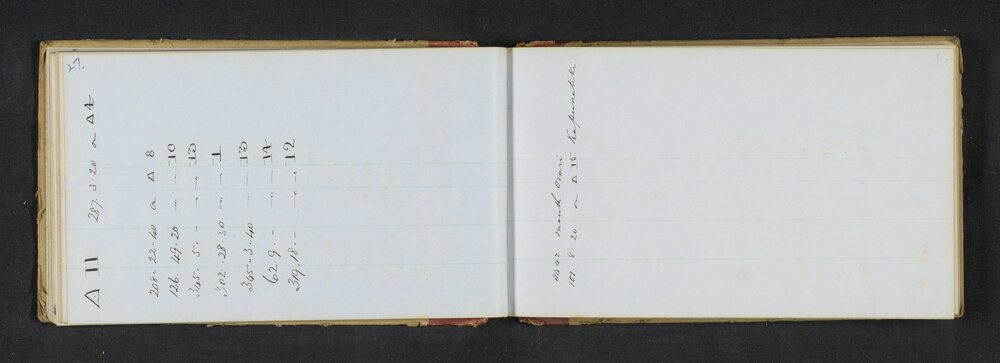 27.
Δ 11   287. 3. 20 on Δ 4
208. 22. 40 on Δ 8
126. 49. 20 " " 10
345. 5. - " " 13
302. 28. 30 " " 1
345. 3. 40 " " 13
62. 9. - " " 14
319. 18. - " " 12
mouth Orari
101. 8. 20 on Δ 15 Kapunatiki